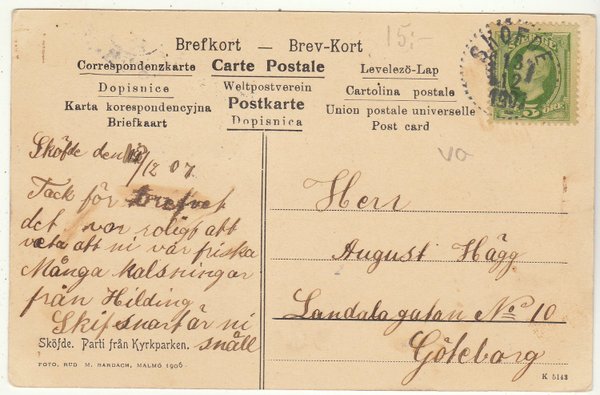 15;-
Brefkort — Brev-Kort
Correspondenzkarte Carte Postale Levelezö-Lap
Dopisnice Weltpostverein Cartolina postale
Karta korespondencyjna Postkarte Union postale universelle
Briefkaart Dopisnica Post card
SKÖFDE
1907
5 ÖRE
VO
Sköfde den /12 07
Tack för brefvet
det var roligt att
veta att ni var friska
Många halsningar
från Hilding
Skif snart är ni
snäll
Herr
August Hägg
Landalagatan No 10
Göteborg
Sköfde. Parti från Kyrkparken.
FOTO. RUD M. BARDACH, MALMÖ 1906.
K 5143